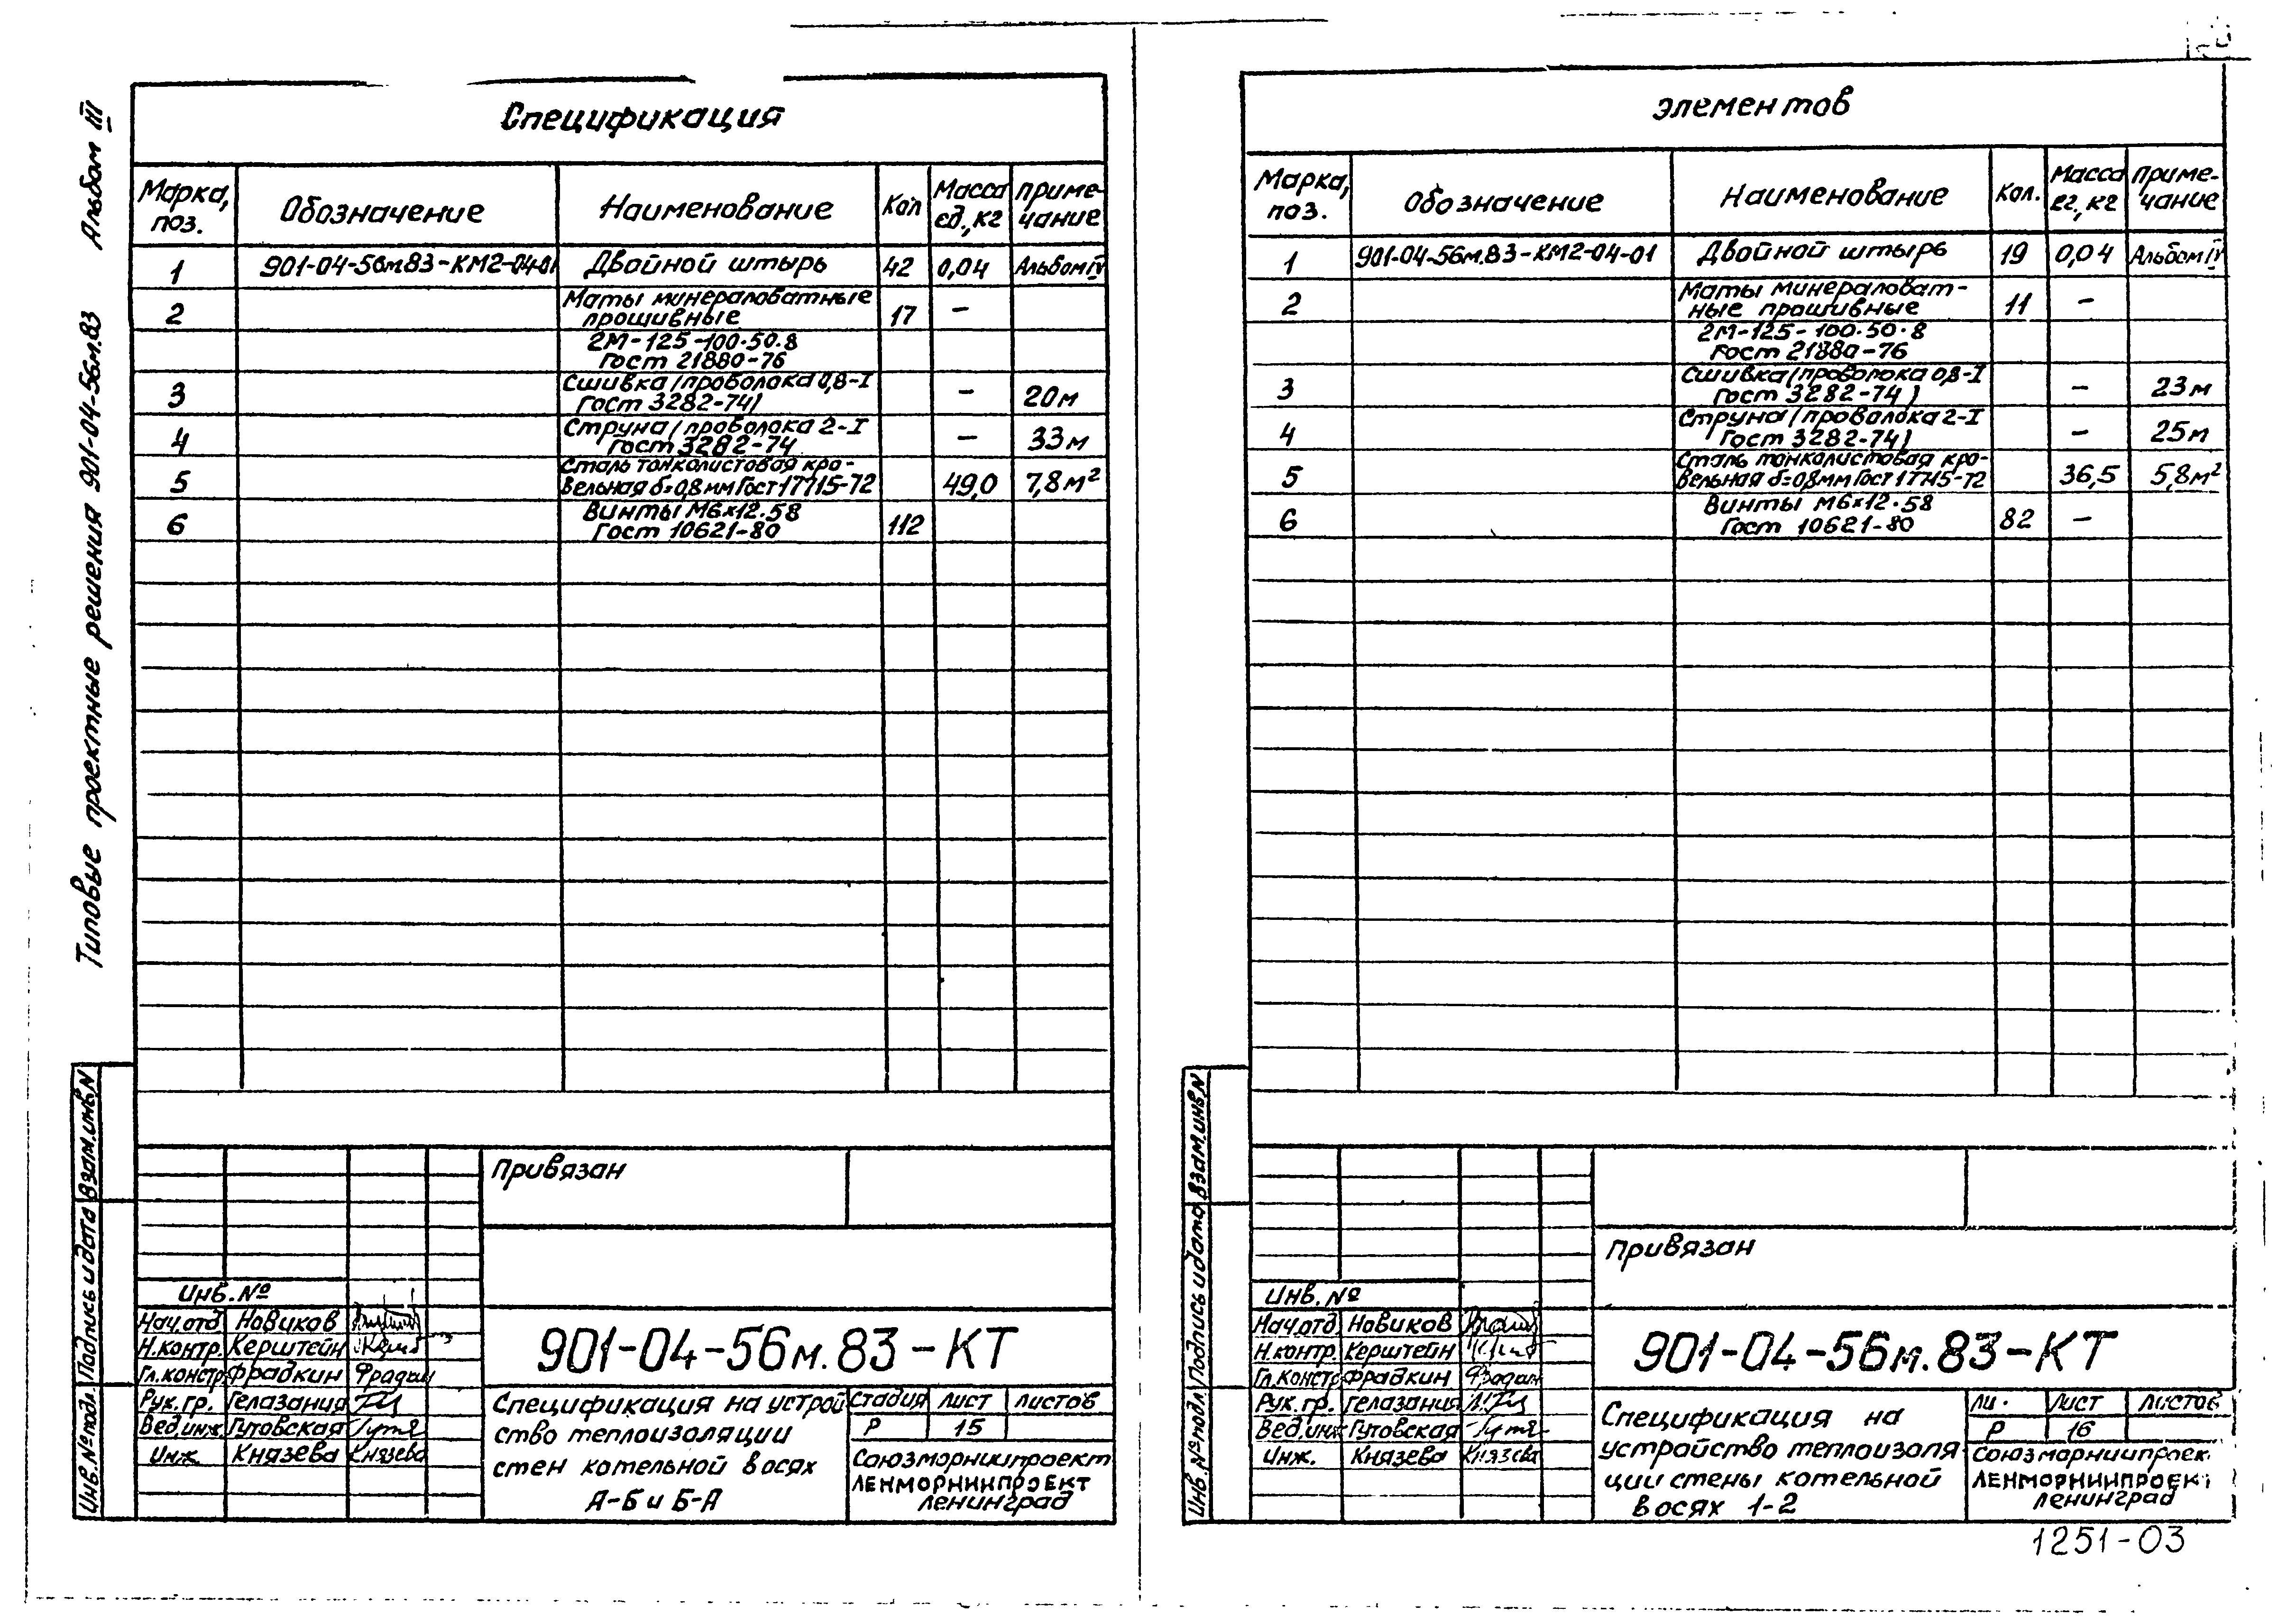 Альбом III
Типовые проектные решения 901-04-56м.83
Спецификация
Марка, поз.
Обозначение
Наименование
Кол
Масса ед.,кг
Приме-
чание
1 901-04-56м83-КМ2-04-01 Двойной штырь 42 0,04 Альбом IV
2 Маты минераловатные
прошивные 17 –
2М-125-100.50.8
Гост 21880-76
3 Сшивка/проволока 0,8-I
Гост 3282-74) – 20м
4 Струна/проволока 2-I
Гост 3282-74 – 33м
5 Сталь тонколистовая кро-
вельная б=0,8мм Гост 17715-72 49,0 7,8м²
6 Винты М6×12.58
Гост 10621-80 112
Взам.инв.N
Подпись и дата
Инв.№подл.
Привязан
Инв.№
Нач.отд. Новиков
Н.контр. Керштейн
Гл.констр. Фрадкин Фрадкин
Рук.гр. Гелазания
Вед.инж. Гутовская
Инж. Князева Князева
901-04-56м.83-КТ
Спецификация на устрой
ство теплоизоляции
стен котельной в осях
А-Б и Б-А
Стадия Лист Листов
Р 15
Союзморниипроект
ЛЕНМОРНИИПРОЕКТ
Ленинград
элементов
Марка, поз.
Обозначение
Наименование
Кол.
Масса ег.,кг
Приме-
чание
1 901-04-56м.83-КМ2-04-01 Двойной штырь 19 0,04 Альбом IV
2 Маты минераловат-
ные прошивные 11 –
2М-125-100.50.8
Гост 21880-76
3 Сшивка(проволока 0,8-I
Гост 3282-74) – 23м
4 Струна/проволока 2-I
Гост 3282-74) – 25м
5 Сталь тонколистовая кро-
вельная б=0,8мм Гост 17715-72 36,5 5,8м²
6 Винты М6×12.58
Гост 10621-80 82 –
Взам.инв.N
Подпись и дата
Инв.№подл.
Привязан
Инв.№
Нач.отд Новиков
Н.контр. Керштейн
Гл.констр Фрадкин
Рук.гр. Гелазания
Вед.инж Гутовская
Инж. Князева Князева
901-04-56м.83-КТ
Спецификация на
устройство теплоизоля
ции стены котельной
в осях 1-2
Ли. Лист Листов
Р 16
Союзморниипроек
ЛЕНМОРНИИПРОЕКТ
Ленинград
1251-03